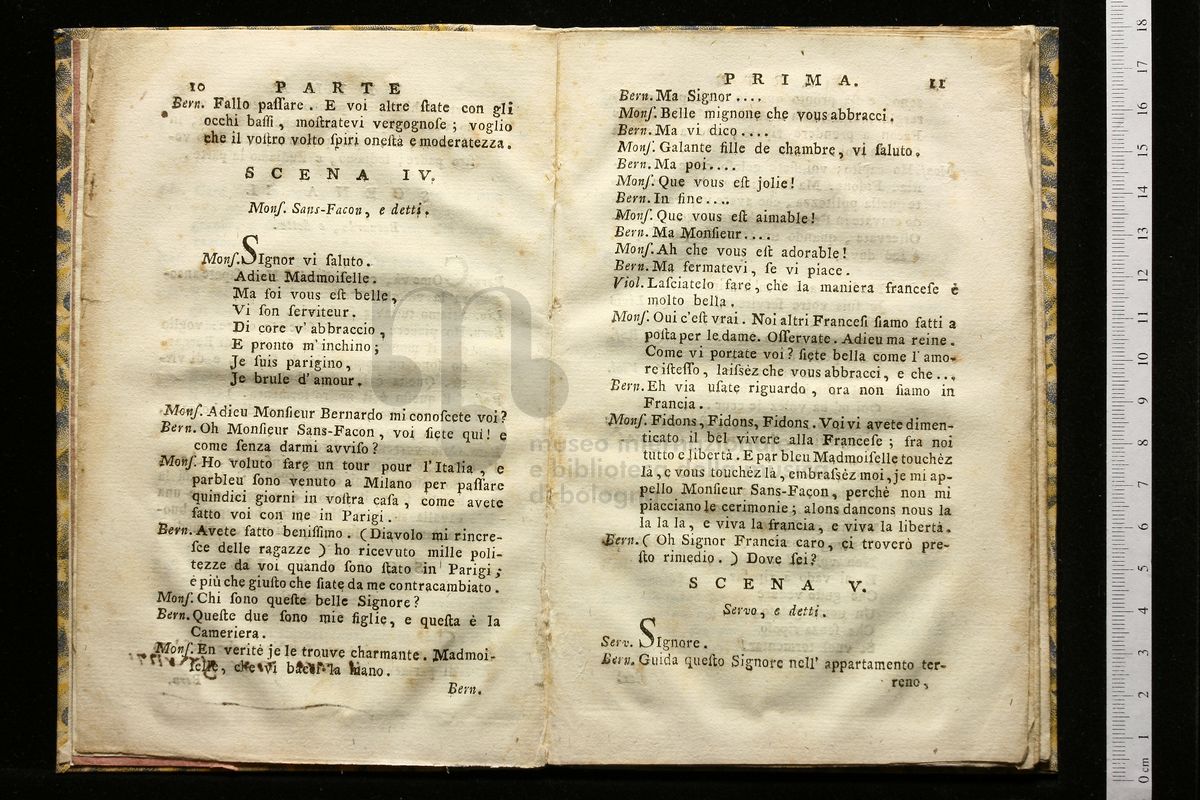 10 PARTE
Bern. Fallo paſſare. E voi altre ſtate con gli
occhi baſſi, moſtratevi vergognoſe; voglio
che il voſtro volto ſpiri oneſta e moderatezza.
SCENA IV.
Monſ. Sans-Facon, e detti.
Monſ. SIgnor vi ſaluto.
Adieu Madmoiſelle.
Ma foi vous eſt belle,
Vi ſon ſerviteur.
Di core v' abbraccio,
E pronto m' inchino;
Je ſuis parigino,
Je brule d' amour.
Monſ. Adieu Monſieur Bernardo mi conoſcete voi?
Bern. Oh Monſieur Sans-Facon, voi ſiete qui! e
come ſenza darmi avviſo?
Monſ. Ho voluto fare un tour pour l'Italia, e
parbleu ſono venuto a Milano per paſſare
quindici giorni in voſtra caſa, come avete
fatto voi con me in Parigi.
Bern. Avete fatto beniſſimo. (Diavolo mi rincre-
ſce delle ragazze) ho ricevuto mille poli-
tezze da voi quando ſono ſtato in Parigi;
è più che giuſto che ſiate da me contracambiato.
Monſ. Chi ſono queſte belle Signore?
Bern. Queſte due ſono mie figlie, e queſta è la
Cameriera.
Monſ. En veritè je le trouve charmante. Madmoi-
ſelle, che vi baci la mano.
Bern.
PRIMA. 11
Bern. Ma Signor....
Monſ. Belle mignone che vous abbracci.
Bern. Ma vi dico....
Monſ. Galante fille de chambre, vi ſaluto.
Bern. Ma poi....
Monſ. Que vous eſt jolie!
Bern. In fine....
Monſ. Que vous eſt aimable!
Bern. Ma Monſieur....
Monſ. Ah che vous eſt adorable!
Bern. Ma fermatevi, ſe vi piace.
Viol. Laſciatelo fare, che la maniera franceſe è
molto bella.
Monſ. Oui c'eſt vrai. Noi altri Franceſi ſiamo fatti a
poſta per le dame. Oſſervate. Adieu ma reine.
Come vi portate voi? ſiete bella come l' amo-
re iſteſſo, laiſsèz che vous abbracci, e che...
Bern. Eh via uſate riguardo, ora non ſiamo in
Francia.
Monſ. Fidons, Fidons, Fidons. Voi vi avete dimen-
ticato il bel vivere alla Franceſe; fra noi
tutto e libertà. E par bleu Madmoiſelle touchèz
là, e vous touchèz là, embraſsèz moi, je mi ap-
pello Monſieur Sans-Façon, perchè non mi
piacciano le cerimonie; alons dancons nous la
la la la, e viva la francia, e viva la libertà.
Bern. (Oh Signor Francia caro, ci troverò pre-
ſto rimedio.) Dove ſei?
SCENA V.
Servo, e detti.
Serv. SIgnore.
Bern. Guida queſto Signore nell' appartamento ter-
reno,
museo internazionale
e biblioteca della musica
di bologna
18
17
16
15
14
13
12
11
10
9
8
7
6
5
4
3
2
1
0 cm